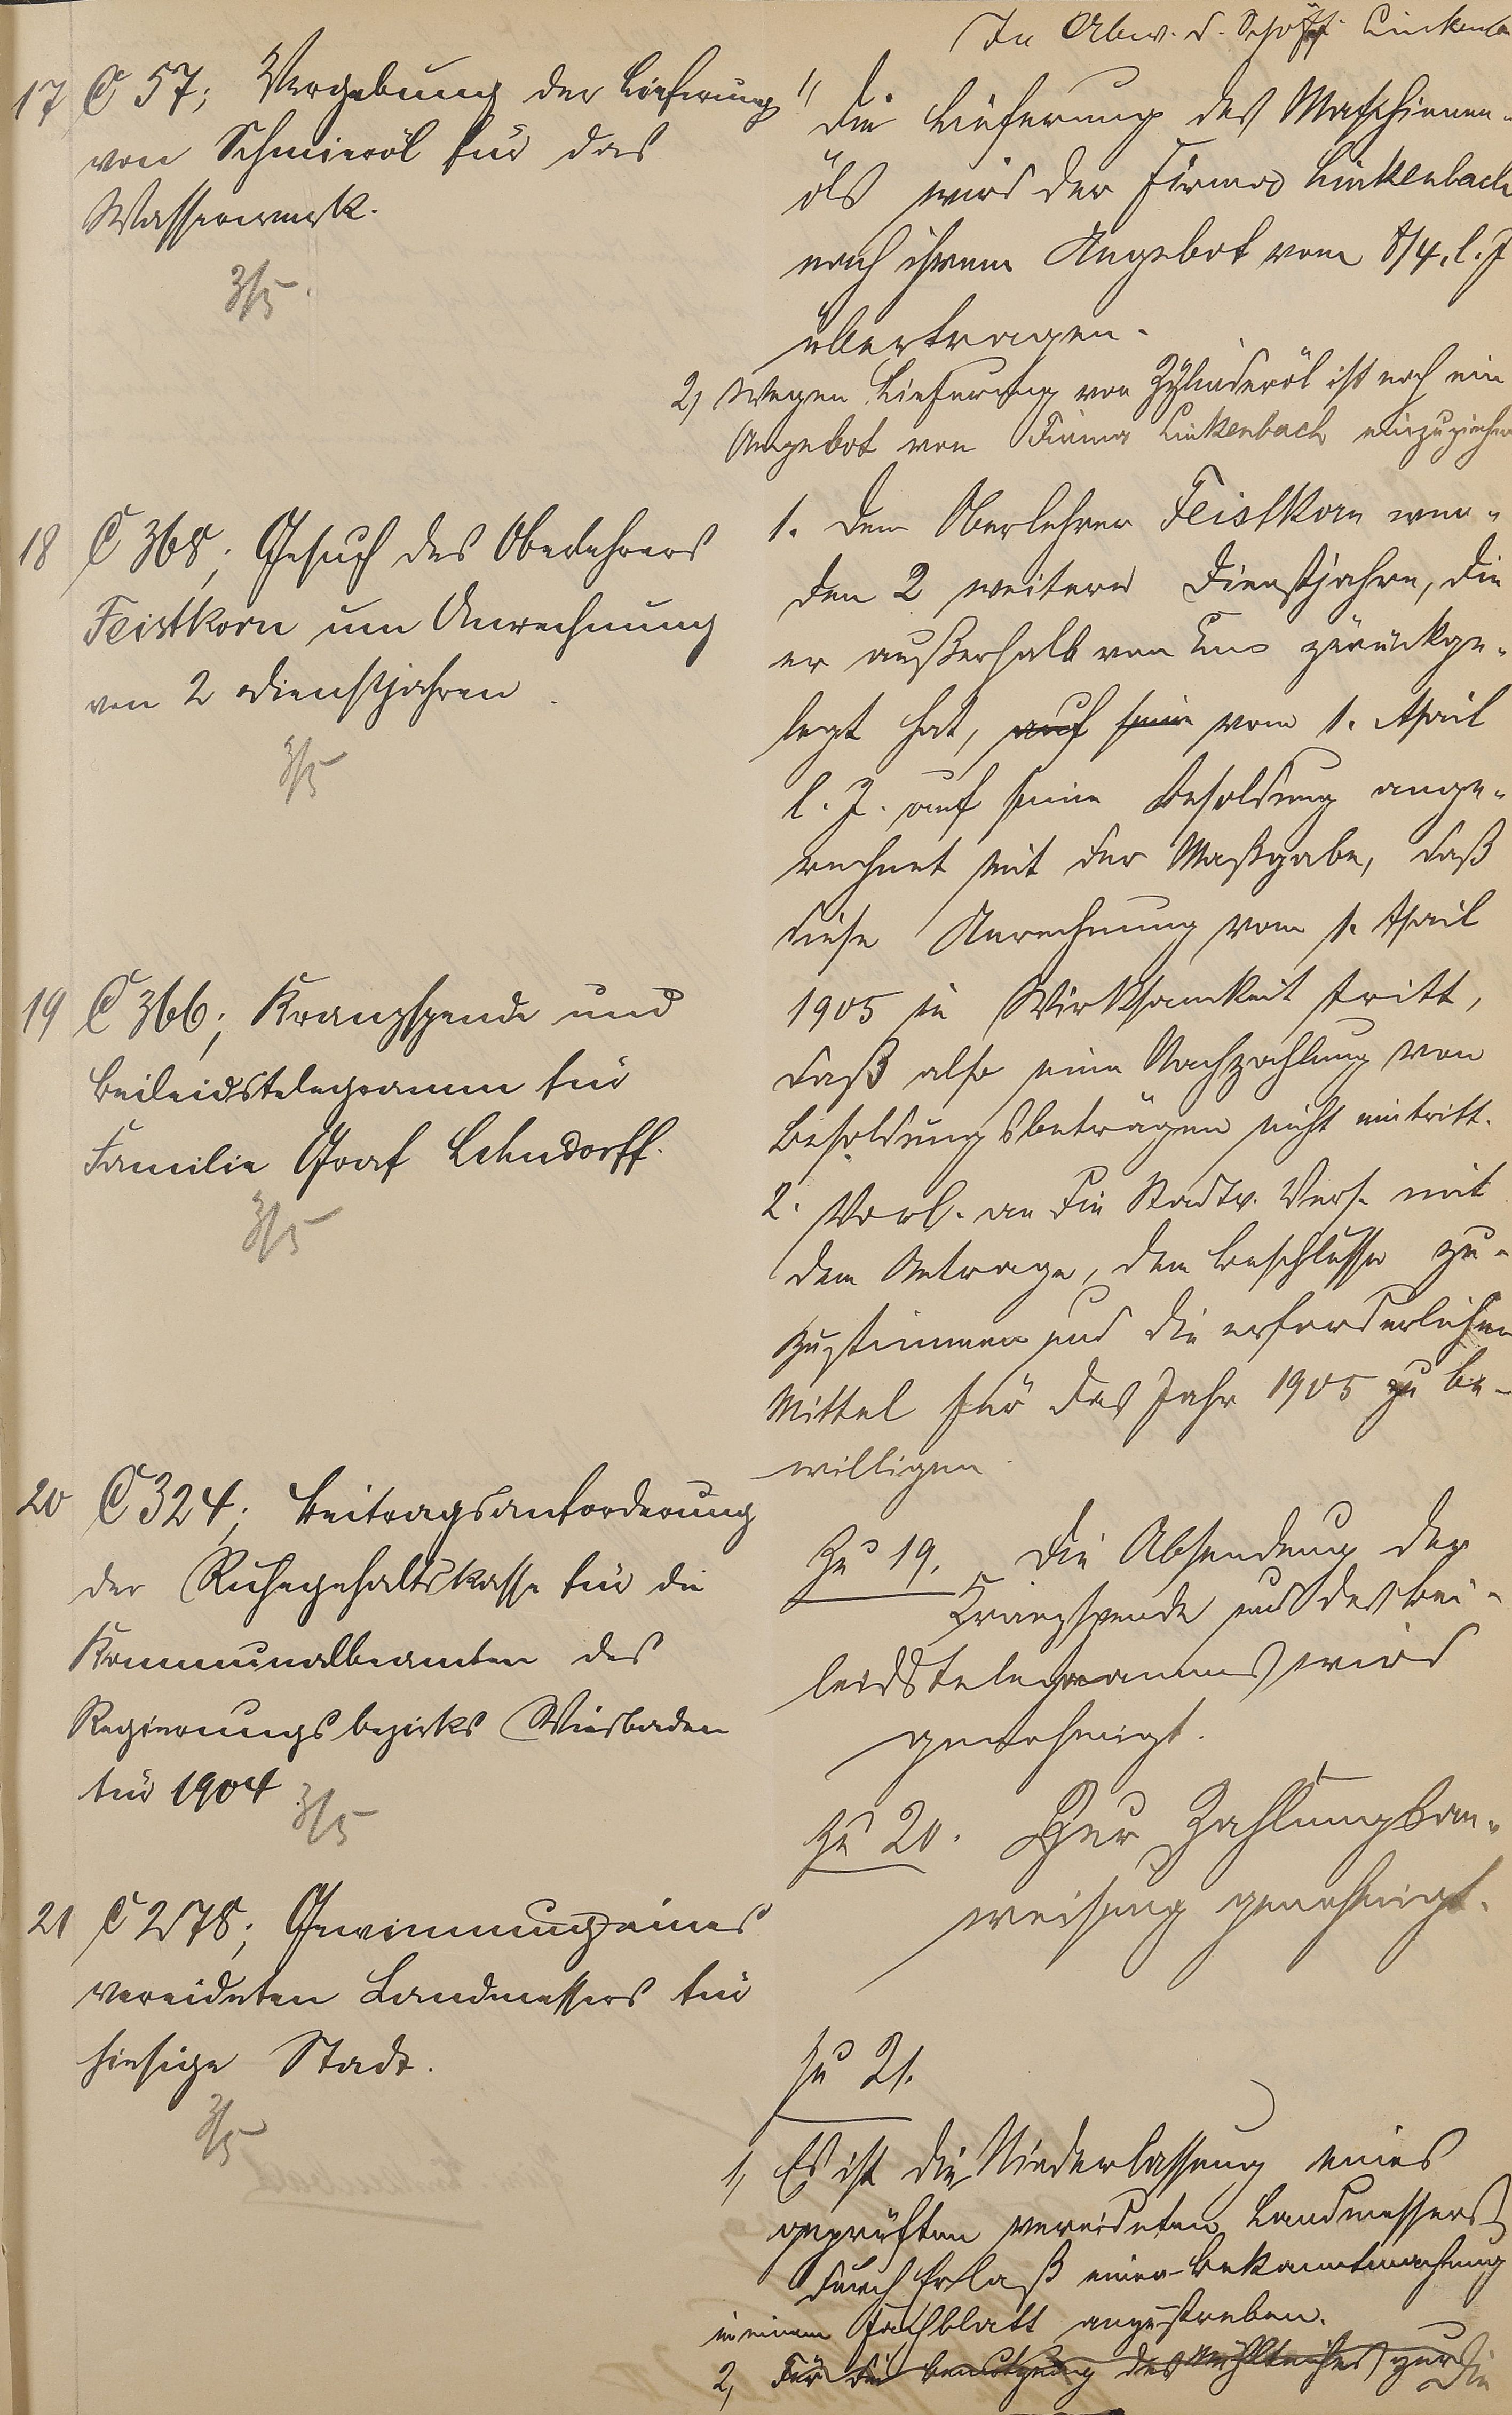 In Abw. d. Schöff. Linkenb
17 C 57; Vergebung der Lieferung
von Schmieröl für das
Wasserwerk.
3/5.
1) Die Lieferung des Maschinen-
öls wird der Firma Linkenbach
nach ihrem Angebot vom 8/4. l. J
übertragen.
2) Wegen Lieferung von Zylinderöl ist noch ein
Angebot von Firma Linkenbach einzuziehen
18 C 368; Gesuch des Oberlehrers
Feistkorn um Anrechnung
von 2 Dienstjahren.
3/5
1. Dem Oberlehrer Feistkorn wer-
den 2 weitere Dienstjahre, die
er außerhalb von Ems zurückge-
legt hat, auf seine vom 1. April
l. J. auf seine Besoldung ange-
rechnet mit der Maßgabe, daß
diese Anrechnung vom 1. April
1905 in Wirksamkeit tritt,
daß also eine Nachzahlung von
Besoldungsbeträgen nicht eintritt.
2. Vorl. an die Stadtv. Vers. mit
dem Antrage, dem Beschlusse zu-
zustimmen und die erforderlichen
Mittel für das Jahr 1905 zu be-
willigen.
19 C 366; Kranzspende und
Beileidstelegramm für
Familie Graf Lehndorff.
3/5
20 C 324; Beitragsanforderung
der Ruhegehaltskasse für die
Kommunalbeamten des
Regierungsbezirks Wiesbaden
für 1904.
3/5
Zu 19. Die Absendung der
Kranzspende und des Bei-
leidstelegramms wird
genehmigt.
Zu 20. Zur Zahlungsan-
weisung genehmigt.
21 C 278; Gewinnung eines
vereideten Landmessers für
hiesige Stadt.
3/5
Zu 21.
1, Es ist die Niederlassung eines
geprüften vereideten Landmessers
durch Erlaß einer Bekanntmachung
in einem Fachblatt anzustreben.
2, Für die Benutzung des zur Die